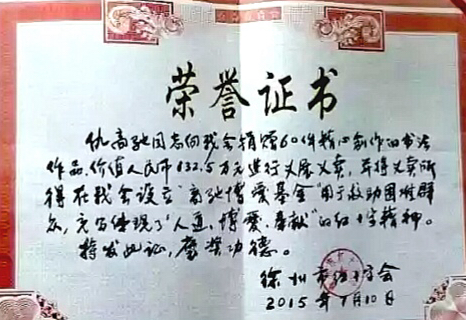 荣誉证书
仇高驰同志向我会捐赠60件精心创作的书法
作品,价值人民币132.5万元进行义展义卖,并将义卖所
得在我会设立“高驰博爱基金”用于救助困难群
众,充分体现了“人道、博爱、奉献”的红十字精神。
特发此证,褒奖功德。
徐州市红十字会
2015年1月10日